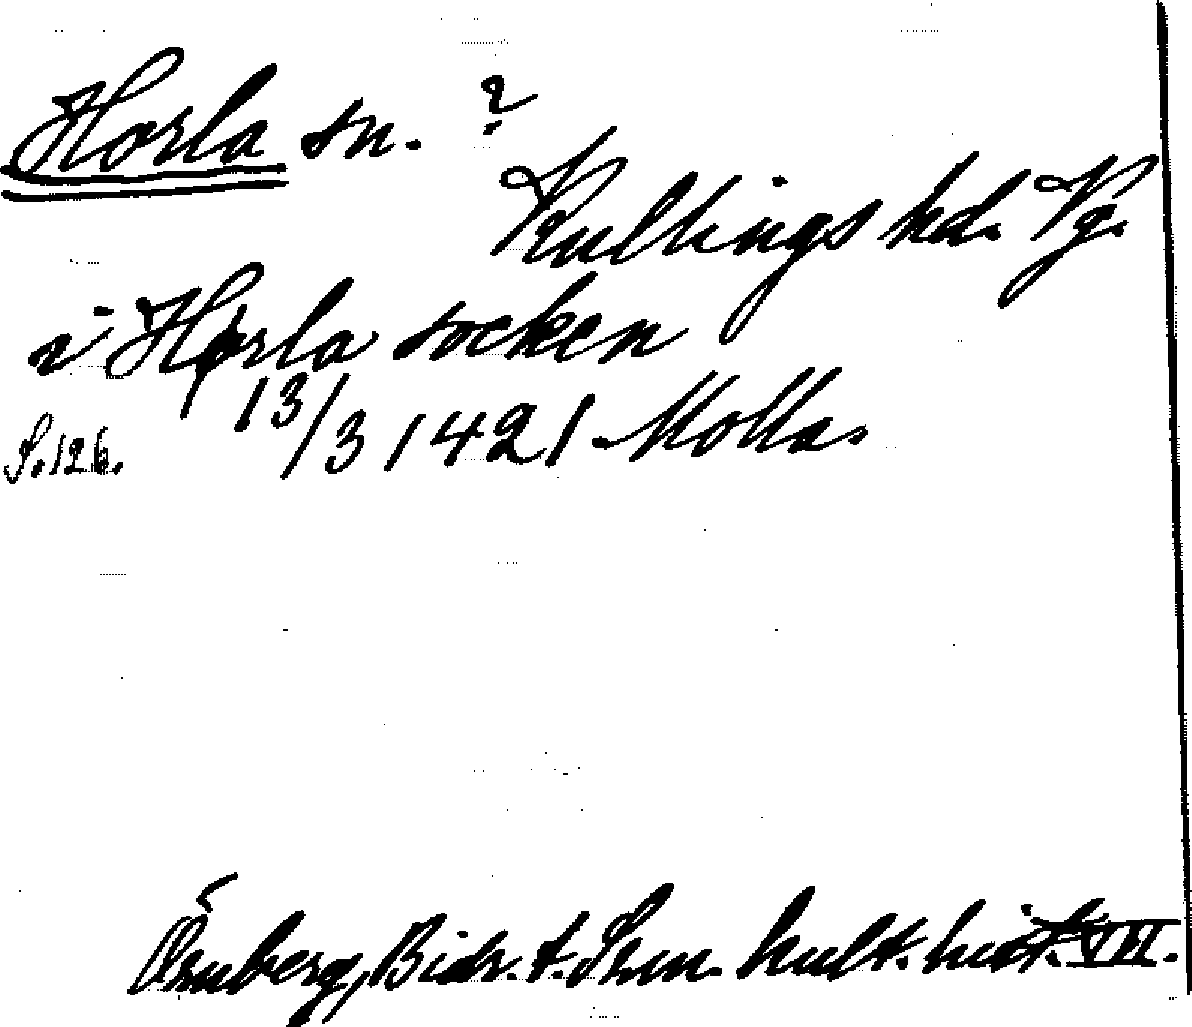 Horla sn. ?
Kullings hd. Vg.
i Horla socken
13/3 1421 Molla.
S. 126.
Örnberg, Bidr. t. Svn. kult. hist. VII.